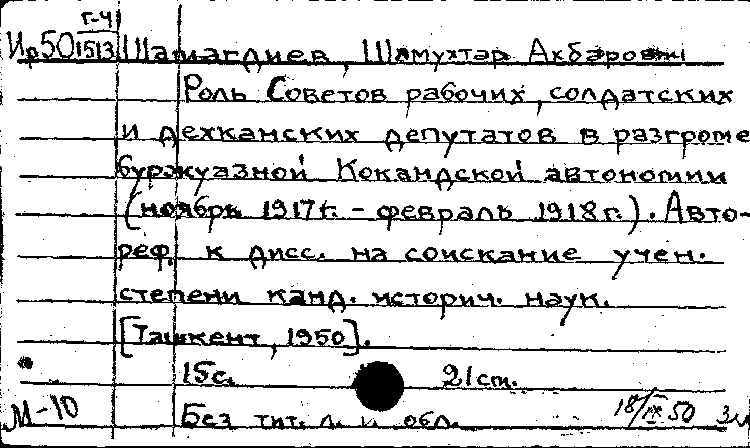 Г-4
Ир50 1513 Шамагдиев, Шамухтар Акбарович
Роль Советов рабочих, солдатских
и дехканских депутатов в разгроме
буржуазной Кокандской автономии
(ноябрь 1917 г. - февраль 1918 г.). Авто-
реф. к дисс. на соискание учен.
степени канд. историч. наук.
[Ташкент, 1950].
15с. 21 см.
М-10 Без тит. л. и обл. 18/IX 50